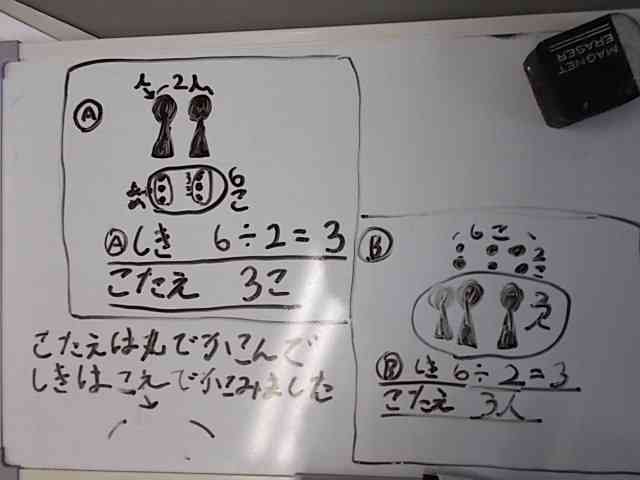 MAGNET
ERASER
Ⓐ
人 2人
6
こ
Ⓐしき 6÷2=3
こたえ 3こ
Ⓑ
6こ
2
こ
3
人
Ⓑしき 6÷2=3
こたえ 3人
こたえは丸でかこんで
しきはこえでかこみました